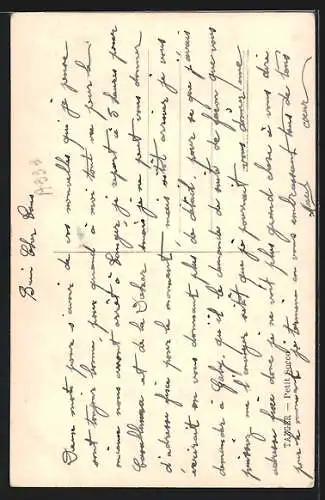 Bien Cher Tous
Deux mots pour s'avoir de vos nouvelles qui je pense
sont toujours bonne pour quand à moi tout va pour le
mieux nous avont arrêt à Tanger je repart à 5 heures pour
Casablanca et de la Dakar mais je ne peut vous donner
d'adresse fixe pour le moment mais sitôt arriver je vous
écrirait en vous donnant plus de détail, pour se que j'avais
demander à qu'il le demande de suite de façon que vous
puissiez me l'envoyer sitôt que je pourrait vous donner une
adresse fixe donc je ne voit plus grand chose à vous dire
pour le moment je termine en vous embrassant tous de tous
cœur
A333
TANGER — Petit Socco